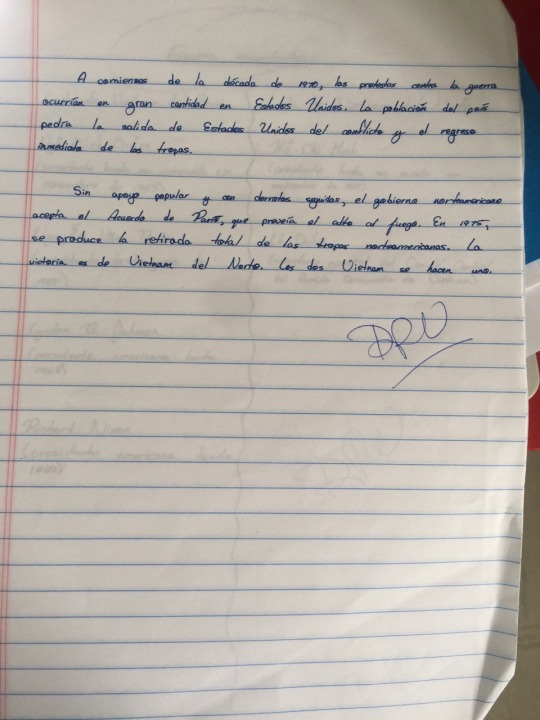 A comienzos de la década de 1970, las protestas contra la guerra
ocurrían en gran cantidad en Estados Unidos. La población del país
pedra la salida de Estados Unidos del conflicto y el regreso
inmediato de las tropas.
Sin apoyo popular y con derrotas seguidas, el gobierno norteamericano
acepta el Acuerdo de París, que proveía el alto al fuego. En 1975,
se produce la retirada total de las tropas norteamericanas. La
victoria es de Vietnam del Norte. Los dos Vietnam se hacen uno.
Lyndon
(presidente americano desde
Richard Nixon
(presidente americano desde